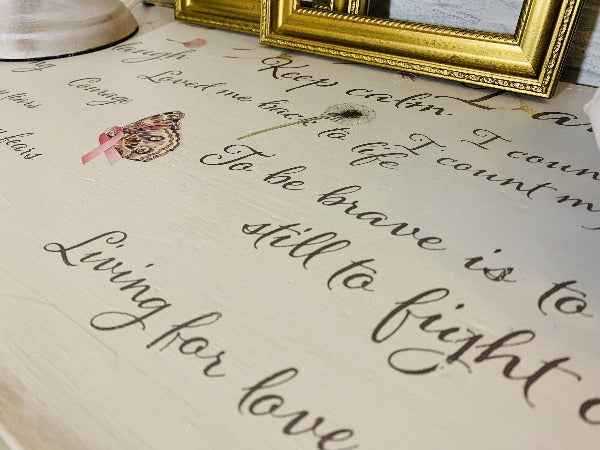 Laugh
Keep calm.
Courage
Loved me back to life
I coun
I count m
fears
To be brave is to
still to fight
Living for love